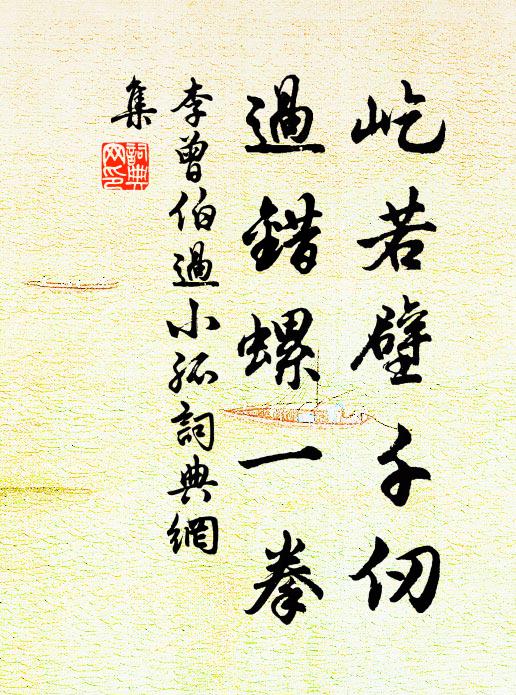 屹若壁千仞
過錯螺一拳
李曾伯過小孤詞典網
集
詞典
网印